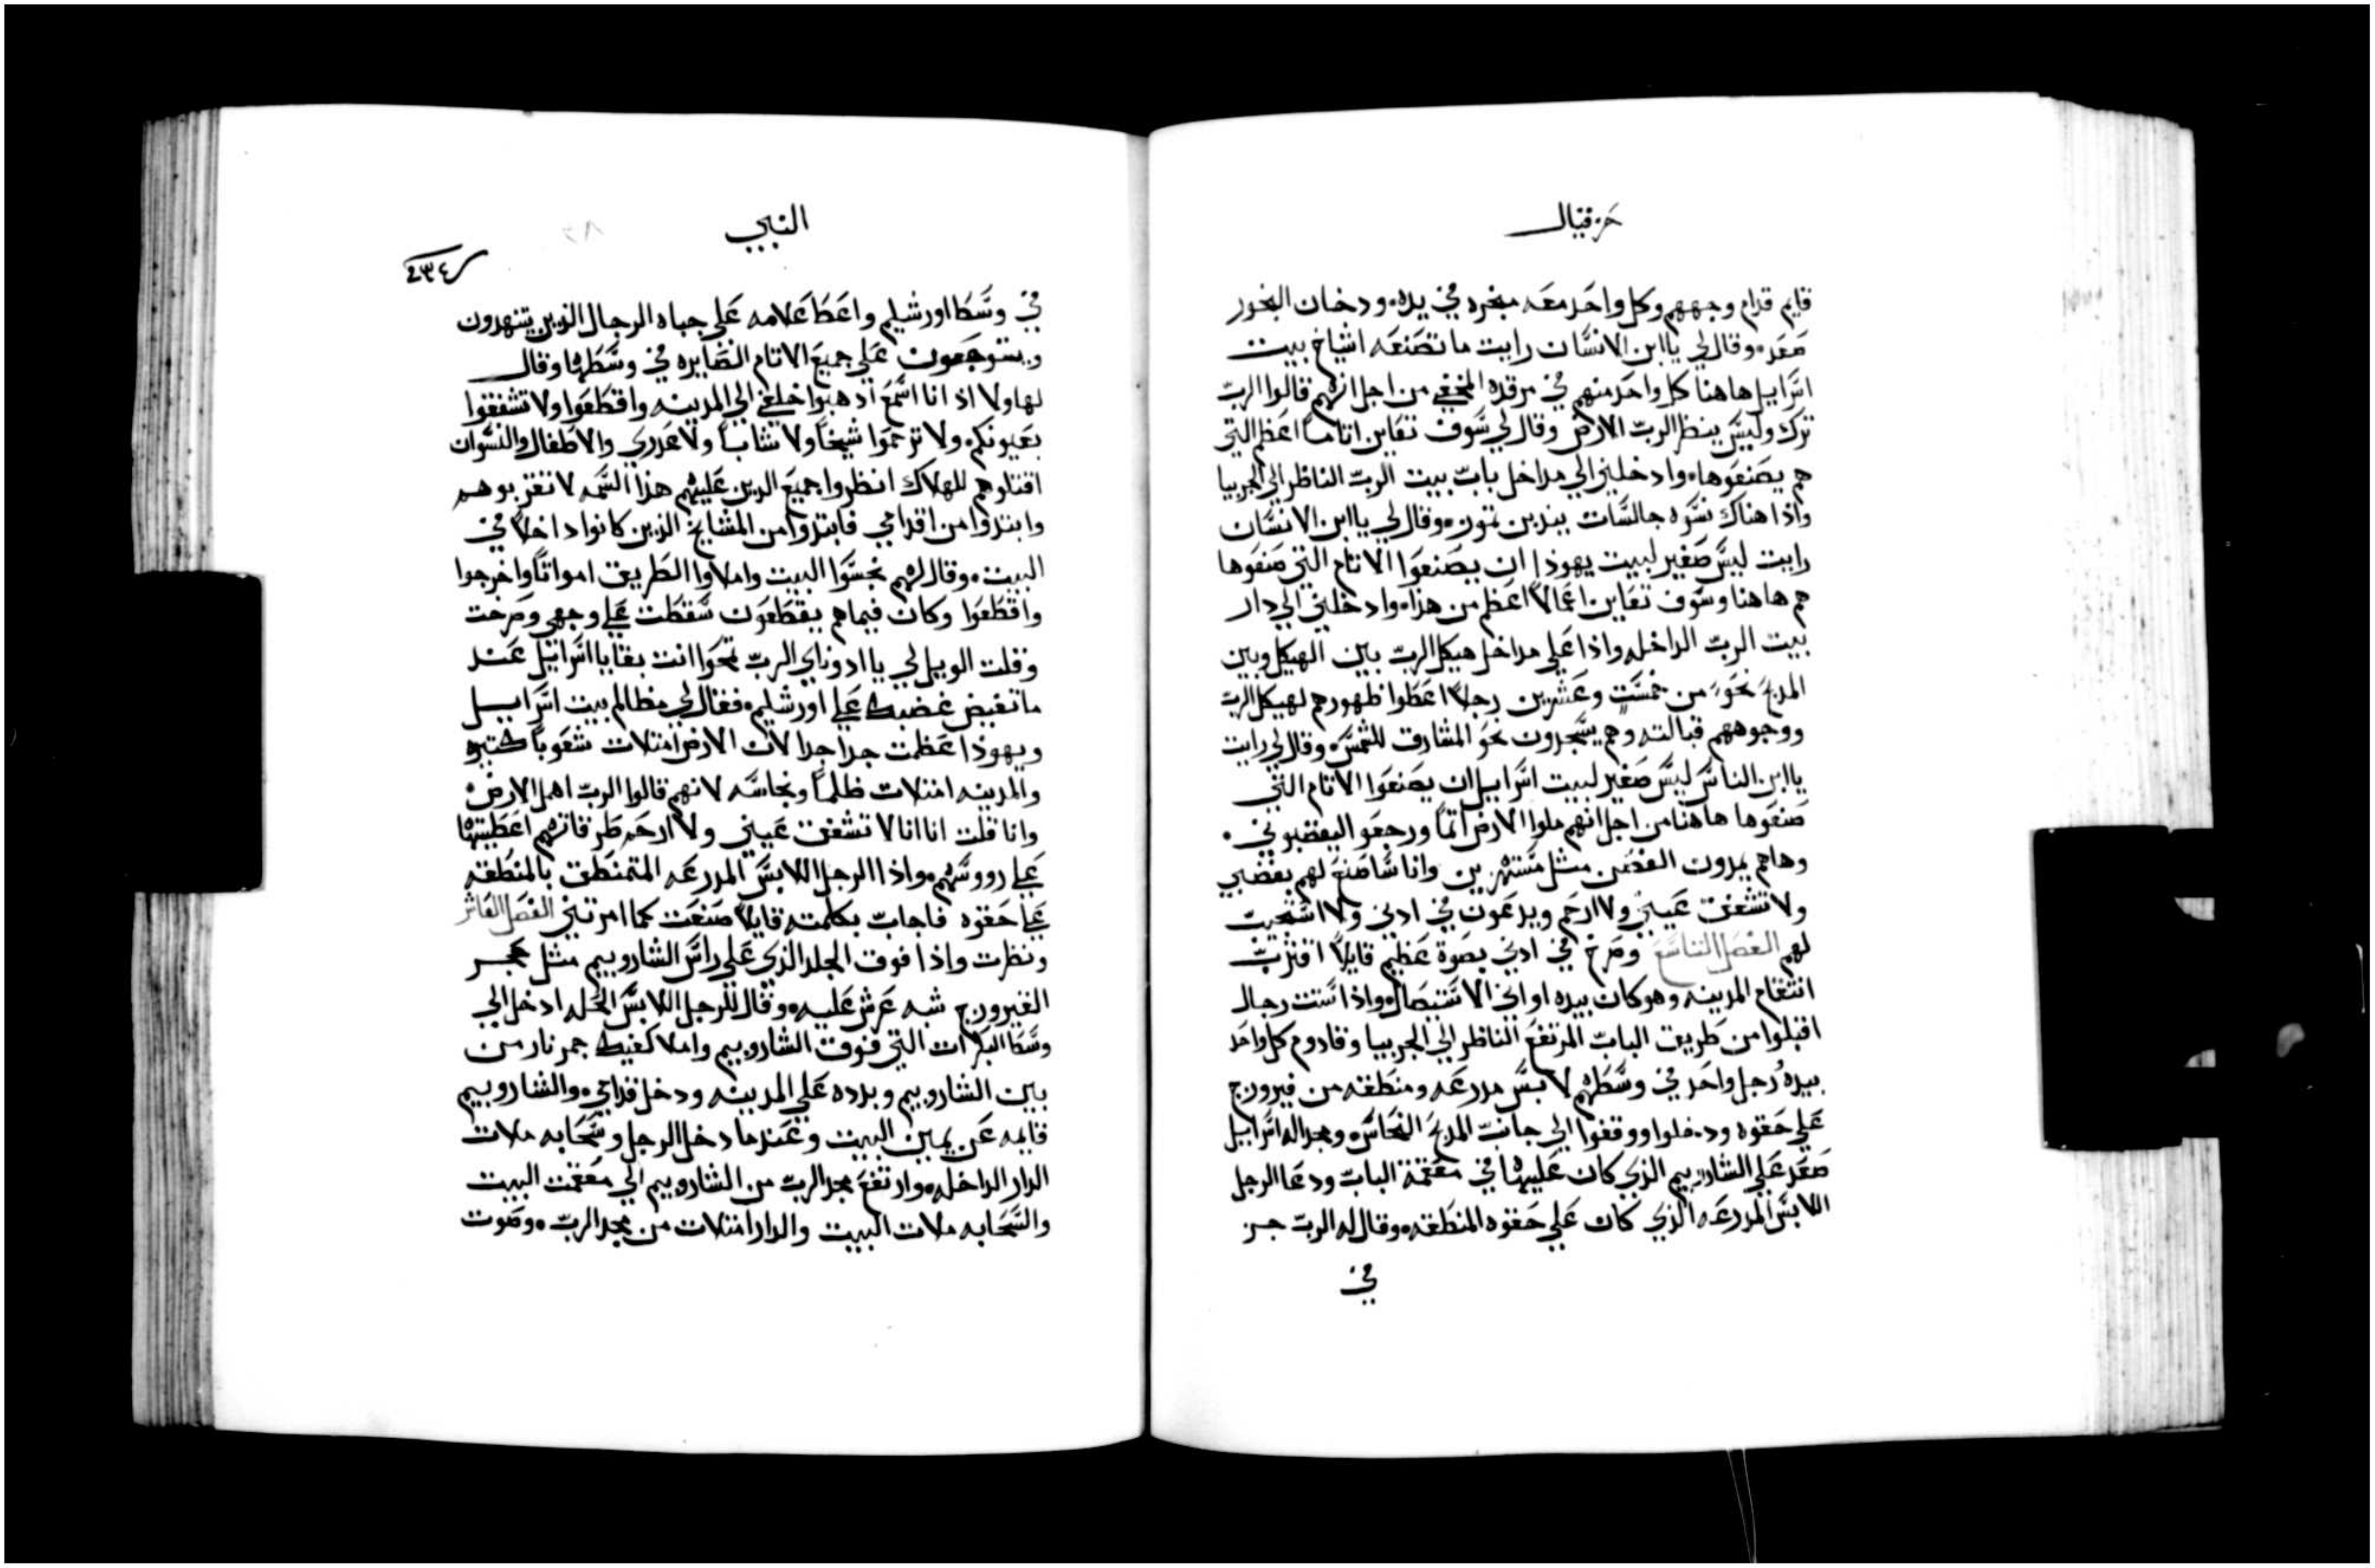 حزقيال
قايم قدام وجههم وكل واحد معه مبخره في يده ودخان البخور
صعد وقال لي يا ابن الانسان رايت ما تصنعه اشياخ بيت
اسرايل هاهنا كل واحد منهم في مرقده المخفي من اجل انهم قالوا الرب
ترك وليس ينظر الرب الارض وقال لي سوف تعاين اتاماً اعظم التي
هم يصنعوها وادخلني الي مداخل باب بيت الرب الناظر الي الجربيا
واذا هناك نسوه جالسات يندبن تموز وقال لي يا ابن الانسان
رايت ليس صغير لبيت يهوذا ان يصنعوا الاتام التي صنعوها
هم هاهنا وسوف تعاين اعمالاً اعظم من هذا وادخلني الي دار
بيت الرب الداخله واذا علي مداخل هيكل الرب بين الهيكل وبين
المدبح نحو من خمست وعشرين رجلاً اعطوا ظهورهم لهيكل الرب
ووجوههم قبالته وهم يسجدون نحو المشارق للشمس وقال لي رايت
يا ابن الناس ليس صغير لبيت اسرايل ان يصنعوا الاتام التي
صنعوها هاهنا من اجل انهم ملوا الارض اتماً ورجعو اليغضبوني
وهاهم يمدون الغصن مثل مستهزين وانا ساصنع لهم بغضبي
ولا تشفق عيني ولا ارحم ويدعون في ادني ولا استجيب
لهم الفصل التاسع وصرخ في ادني بصوة عظيم قايلاً اقترب
انتقام المدينه وهو كان بيده اواني الاستيصال واذا ستت رجال
اقبلوا من طريق الباب المرتفع الناظر الي الجربيا وقادوم كل واحد
بيده رجل واحد في وسطهم لابس مدرعه ومنطقه من فيروزج
علي حقوه ودخلوا ووقفوا الي جانب المدبح النحاس ومجد اله اسرايل
صعد علي الشاروبيم الذي كان عليها في معقمة الباب ودعا الرجل
اللابس المدرعه الذي كان علي حقوه المنطقه وقال له الرب جز
في
النبي
٢٣٤
في وسط اورشليم واعط علامه علي جباه الرجال الذين يتنهدون
ويتوجعون علي جميع الاتام الصايره في وسطها وقال
لهاولا اذ انا اسمع اذهبوا خلفي الي المدينه واقطعوا ولا تشفقوا
بعيونكم ولا ترحموا شيخاً ولا شاباً ولا عدري والاطفال والنسوان
اقتلوهم للهلاك انظروا جميع الدين عليهم هذا السمه لا تقربوهم
وابتدوا من اقداسي فابتدوا من المشايخ الذين كانوا داخلاً في
البيت وقال لهم نجسوا البيت واملاوا الطريق امواتاً واخرجوا
واقطعوا وكان فيما هم يقطعون سقطت علي وجهي وصرخت
وقلت الويل لي يا ادوناي الرب تمحوا انت بقايا اسرائيل عند
ما تفيض غضبك علي اورشليم فقال لي مظالم بيت اسرايل
ويهوذا عظمت جدا جدا لان الارض امتلات شعوباً كتيره
والمدينه امتلات ظلماً ونجاسه لانهم قالوا الرب اهمل الارض
وانا قلت انا انا لا تشفق عيني ولا ارحم طرقاتهم اعطيتها
علي رووسهم واذا الرجل اللابس المدرعه المتمنطق بالمنطقه
علي حقوه فاجاب بكلمته قايلاً صنعت كما امرتني الفصل العاشر
ونظرت واذا فوق الجلد الذي علي راس الشاروبيم مثل حجر
الفيروزج شبه عرش عليه وقال للرجل اللابس الحله ادخل الي
وسط البكرات التي فوق الشاروبيم واملا كفيك جمر نار من
بين الشاروبيم وبدده علي المدينه ودخل قدامي والشاروبيم
قايمه عن يمين البيت وعندما دخل الرجل وسحابه ملات
الدار الداخله وارتفع مجد الرب من الشاروبيم الي معقمت البيت
والسحابه ملات البيت والدار امتلات من مجد الرب وصوت